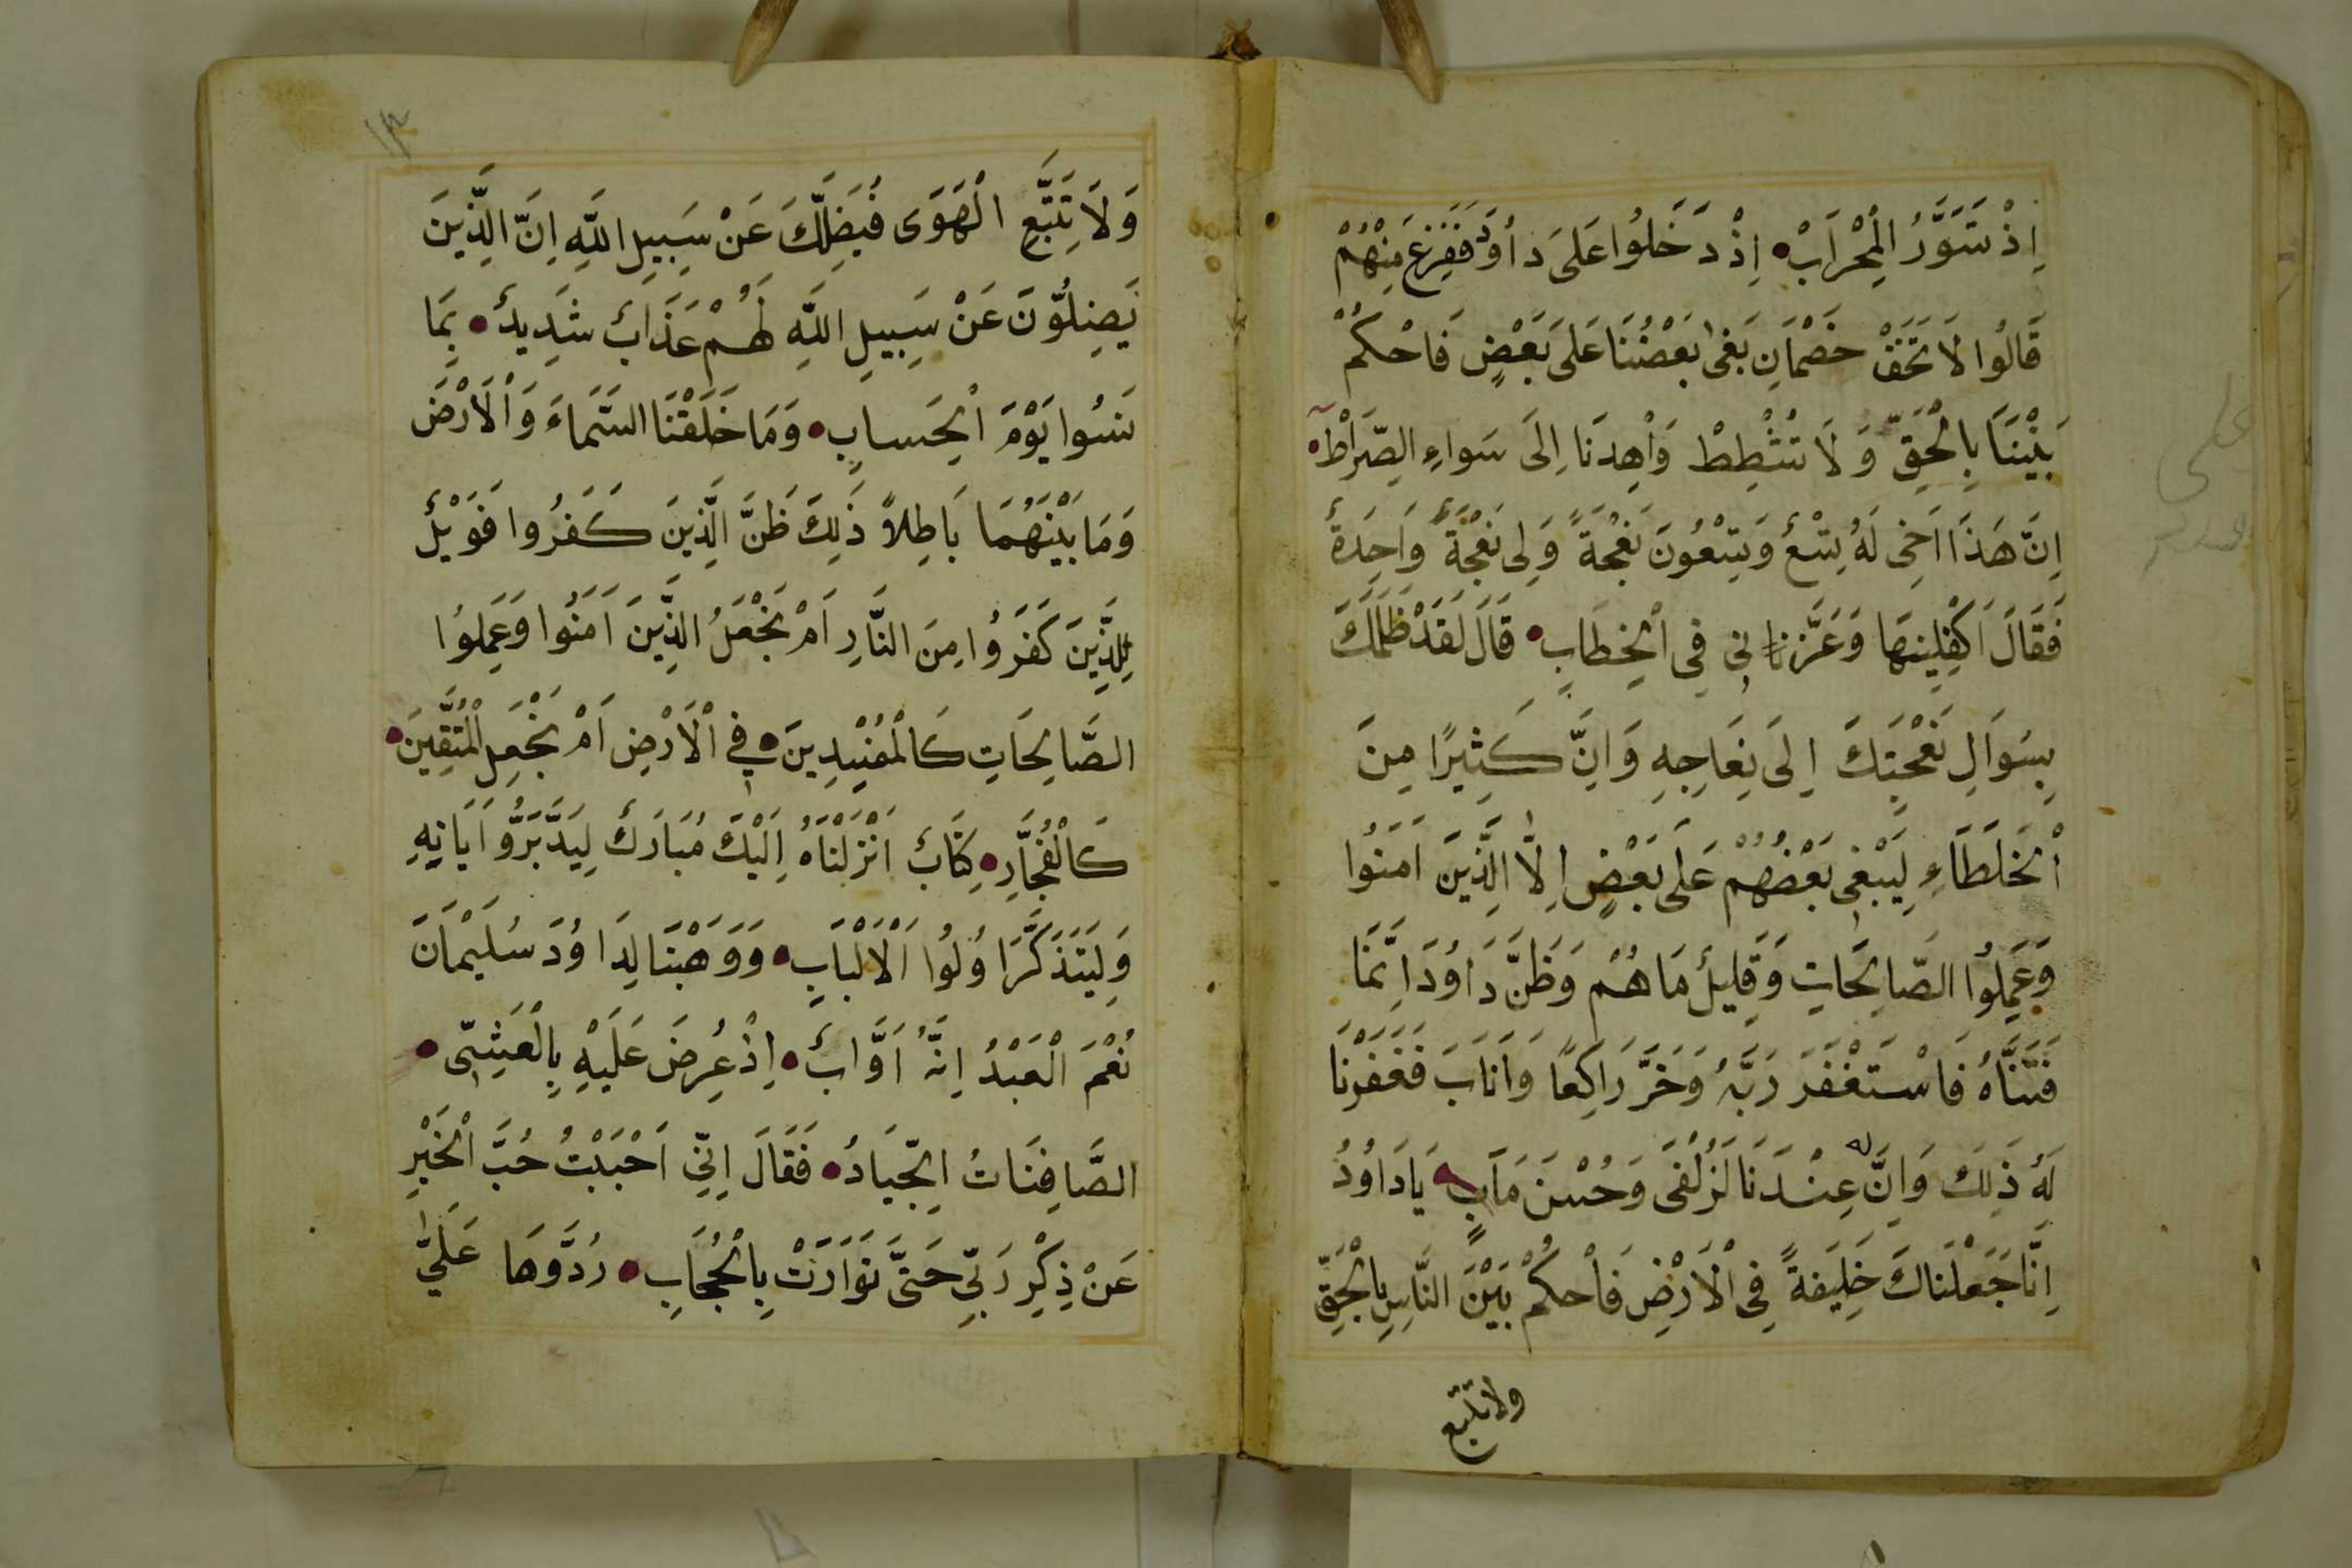 اِذْ تَسَوَّرُ الْمِحْرَابْ اِذْ دَخَلُوا عَلَىَ دَاُوَدَ فَفَزِعَ مِنْهُمْ
قَالُوا لَا تَخَفْ خَصْمَانِ بَغَىٰ بَعْضُنَا عَلَىَ بَعْضٍ فَاحْكُمْ
بَيْنَنَا بِالْحَقِّ وَلَا تُشْطِطْ وَاْهِدِنَا اِلَىَ سَواءِ الصِّرَاطْ
اِنَّ هَذَا اَخِى لَهُ تِسْعٌ وَتِسْعُونَ نَعْجَةً وَلِى نَعْجَةٌ وَاحِدَةٌ
فَقَالَ اَكْفِلِينهَا وَعَزَّزنانى فِى اْلخِطَابِ قَالَ لَقَدْ ظَلَمَكَ
بِسُوَالِ نَعْجَتِكَ اِلَىَ نِعَاجِهِ وَاِنَّ كَثِيرًا مِنَ
اْلخَلَطَاءِ لِيَبْغِى بَعْضُهُمْ عَلَىَ بَعْضٍ اِلَّا الَّذِينَ اَمَنُوا
وَعَمِلُوا الصَّالِحَاتِ وَقَلِيلٌ مَا هُمْ وَظَنَّ دَاوُدَ اِنَّمَا
فَتَنَّاهُ فَاسْتَغْفَرَ رَبَّهُ وَخَرَّ رَاكِعًا وَاَنَابَ فَغَفَرْنَا
لَهُ ذَلِكَ وَاِنَّ له عِنْدَنَا لَزُلْفَى وَحُسْنَ مَاَبٍ يَا دَاوُدُ
اِنَّا جَعَلْنَاكَ خَلِيفَةً فِى اْلَارْضِ فَاْحكُمْ بَيْنَ النَّاسِ بِالْحَقِّ
ولا تتبع
١٣
وَلَا تِتَّبَّعِ الْهَوَى فَيُضِلَّكَ عَنْ سَبِيلِ اللَّهِ اِنَّ الَّذِينَ
يَضِلُّونَ عَنْ سَبِيلِ اللَّهِ لَهُمْ عَذَابٌ شَدِيدٌ بِمَا
نَسُوا يَوْمَ اْلحِسابِ وَمَا خَلَقْنَا السَّمَاءَ وَاْلَارْضَ
وَمَا بَيْنَهُمَا بَاطِلاً ذَلِكَ ظَنَّ الَّذِينَ كَفَرُوا فَوَيْلٌ
لِلَّذِينَ كَفَرَوُا مِنَ النَّارِ اَمْ نَجْعَلُ الَّذِينَ اَمَنُوا وَعَمِلوُا
الصَّالِحَاتِ كَالْمُفْسِدِينَ فِي اْلَارْضِ اَمْ نَجْعَلِ الْمُتَّقِينَ
كَالْفُجَّارِ كِتَابٌ اَنْزَلْنَاهُ اِلَيْكَ مُبَارَكٌ لِيَدَّبَرُّوا اَيَاتِهِ
وَلِيَتَذَكَّرَ اوُلُوا اْلَالْبَابِ وَوَهَبْنَا لِدَاوُدَ سُلَيْمَانَ
نُعْمَ الْعَبْدُ اِنَّهُ اَوَّابٌ اِذْ عُرِضَ عَلَيْهِ بِالْعَشِىِّ
الصَّافِنَاتُ الجِّيَادُ فَقَالَ اِنِّي اَحْبَبْتُ حُبَّ اْلخَيْرِ
عَنْ ذِكِْرِ رَبِّي حَتَّىَ تَوَارَتْ بِالْحُجَابِ رُدُّوهَا عَلَىَّ